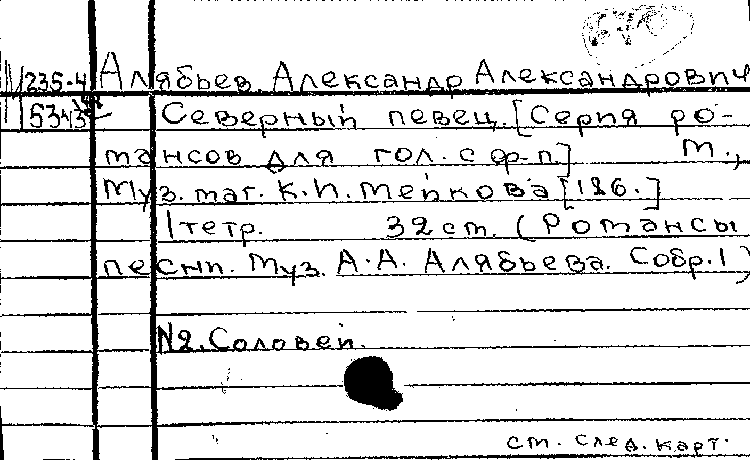 235-4 Алябьев. Александр Александрович
Северный певец. [Серия ро-
мансов для гол. с ф-п] М.,
Муз. маг. К.И. Мейкова [186.]
1 тетр. 32 см. (Романсы
песни. Муз. А.А. Алябьева. Собр. 1)
№2. Соловей.
см. след. карт.